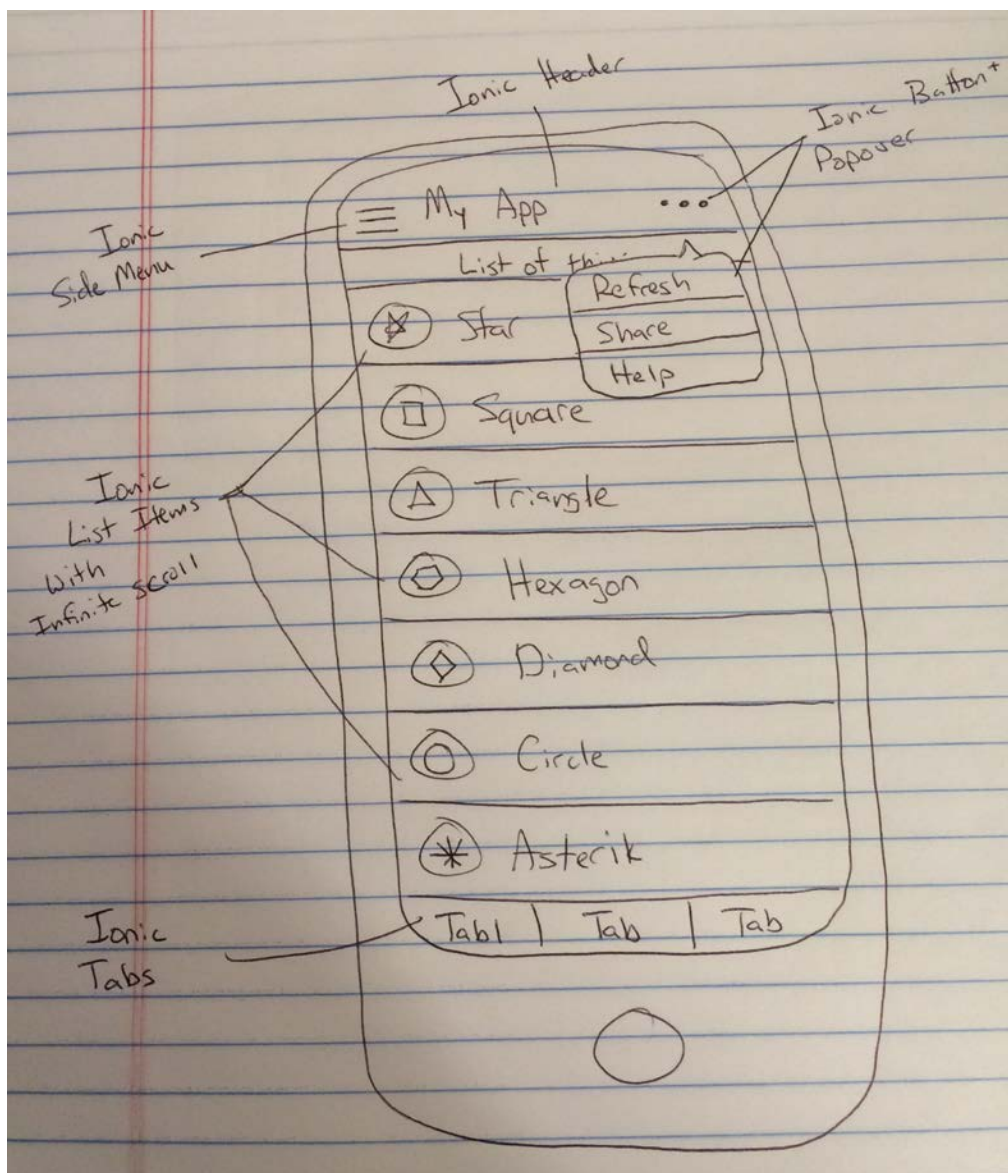 Ionic Header
Ionic Button +
Popover
My App
Ionic
Side Menu
List of thi...
Refresh
Share
Help
Star
Square
Triangle
Hexagon
Diamond
Circle
Asterik
Ionic
List Items
with
Infinite scroll
Tab1 | Tab | Tab
Ionic
Tabs